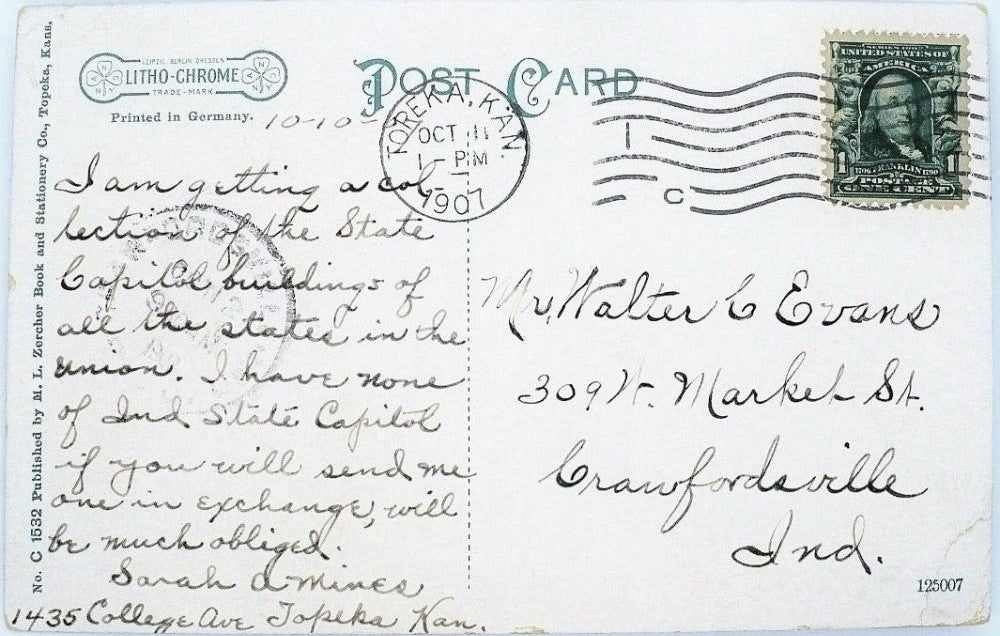 No. C 1532 Published by M. L. Zercher Book and Stationery Co., Topeka, Kans.
LEIPZIG BERLIN DRESDEN
LITHO-CHROME
TRADE-MARK
Printed in Germany.
POST CARD
TOPEKA, KAN.
OCT 11
1 - PM
1907
1
C
SERIES 1902
UNITED STATES OF
AMERICA
1 FRANKLIN 1
10-10
I am getting a col-
lection of the State
Capitol buildings of
all the states in the
union. I have none
of Ind State Capitol
if you will send me
one in exchange, will
be much obliged.
Sarah A Mines
1435 College Ave Topeka Kan.
Mr. Walter C Evans
309 W. Market St.
Crawfordsville
Ind.
125007